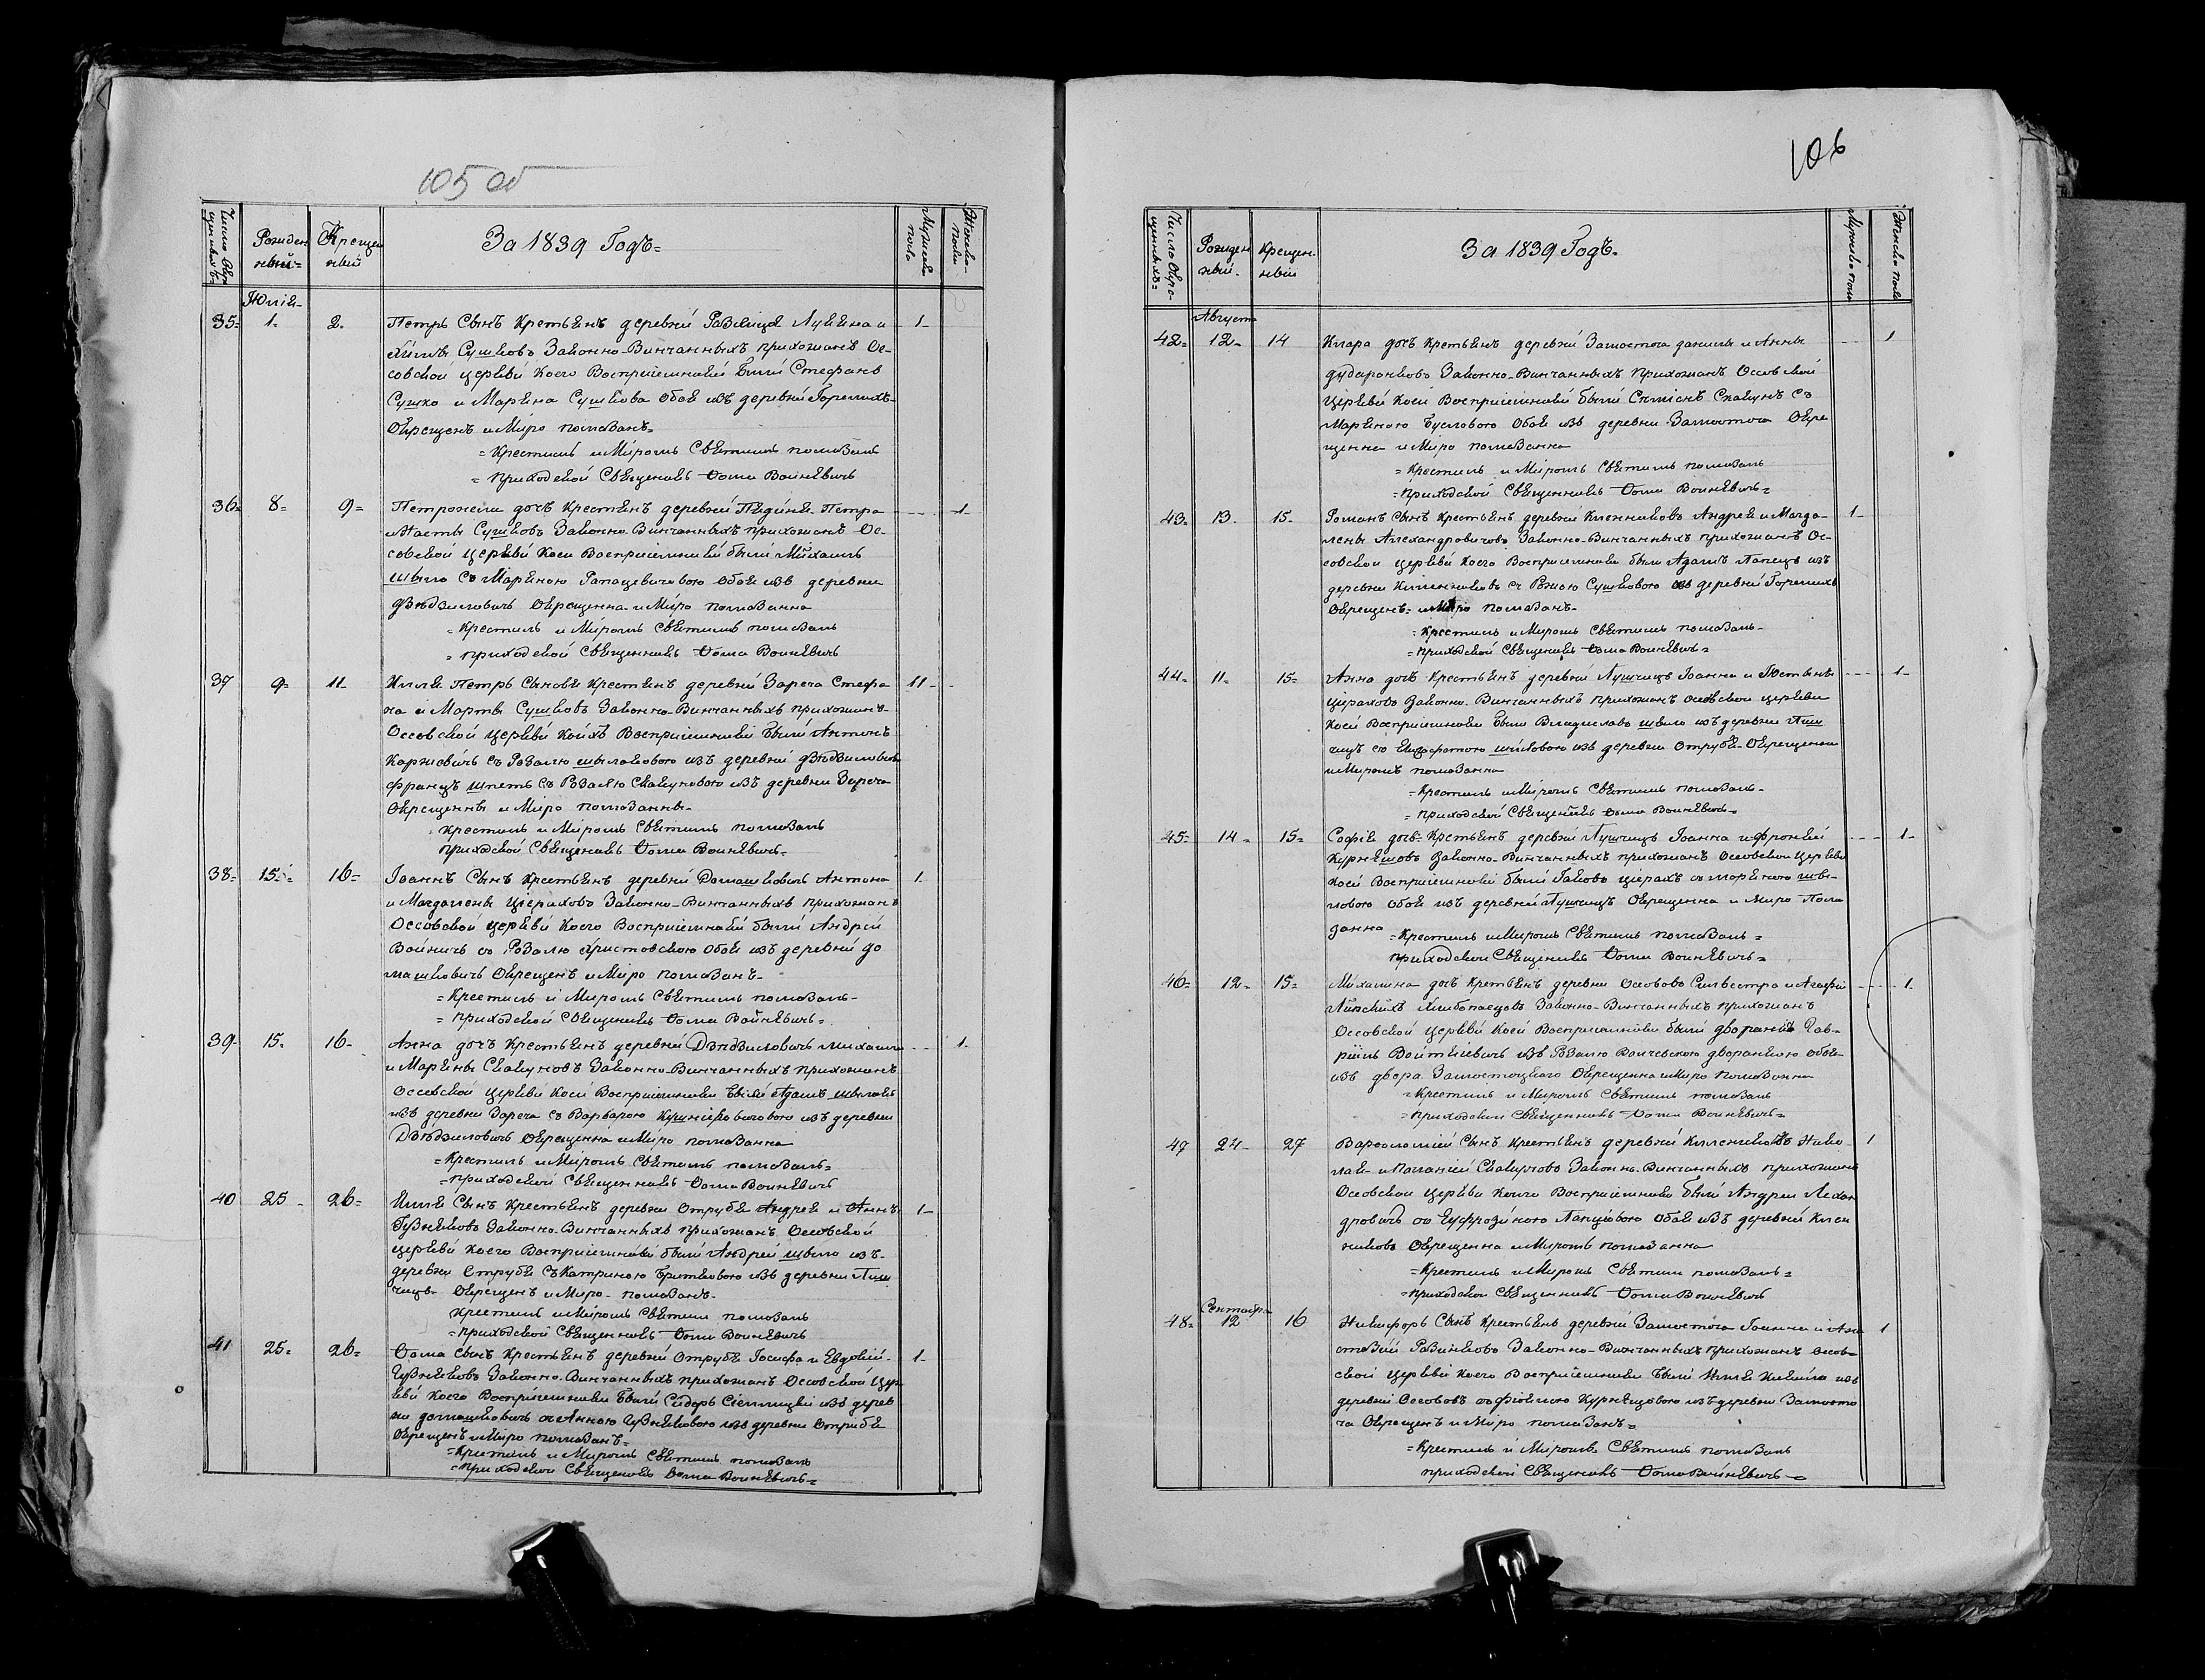 105 об
За 1839 Годъ=
Рожден Крещен
ный= ный
Мужеска
пола
Женска
пола
Юлія
35= 1= 2= Петръ Сынъ Кретьянъ деревни Лукяна и 1
Сушковъ Законно-Винчанныхъ прихожанъ Ос-
совской церквй Коего Воспріемникй Былй Стефанъ
Сушко и Маряна Сушкова Обоя изъ деревнй
Окрещенъ и Миро помазанъ=
=Крестилъ и Миромъ Святимъ помазалъ
= приходской Священикъ Ѳома Войнявичъ
36= 8= 9= Петронеля дочъ Крестянъ деревнй Петра 1
и Насты Сушковъ Законно Винчанныхъ прихожанъ Ос-
совской Церквй Коей Воспріемникй былй Михаилъ
Шыло Съ Маряною обоя изъ деревни
Окрещенна и Миро помазанна
=Крестилъ и Миромъ Святимъ помазалъ
= приходской Священникъ Ѳома Войнявичъ
37 9= 11- Илля Петръ Сыновя Крестянъ деревнй Зареча Стефа 11-
на и Марты Сушковъ Законно-Винчанныхъ прихожанъ-
Оссовской Церквй Койхъ Воспріемникй Былй Антонъ
Каржевичъ съ Розалю шылаковою изъ деревнй
Францъ съ Розалю Скакуновою изъ деревни Зареча
Окрещенны и Миро помазанны-
Крестилъ и Миромъ Святимъ помазалъ
приходской Священикъ Ѳома Войнявичъ=
38= 15= 16= Іоаннъ Сынъ Крестьянъ деревнй Домашковичъ Антона 1-
и Магдалены Ціраховъ Законно-Винчанныхъ прихожанъ
Оссовской церквй Коего Воспріемникй былй Андрій
Войничъ съ Розалю Христовскою обоя изъ деревнй До
машковичъ Окрещенъ и Миро помазанъ-
=Крестилъ и Миромъ Святимъ помазалъ-
= приходской Священикъ Ѳома Войнявичъ=
39- 15= 16- Анна дочъ Крестьянъ деревни Михаила 1-
и Маряны Скакуновъ Законно-Винчанныхъ прихожанъ
Оссовской Церквй Коей Воспріемники Былй Адамъ шылакъ
изъ деревни Зареча съ Варварою изъ деревни
Окрещенна и Миро помазанна
=Крестилъ и Миромъ Святимъ помазалъ=
=приходской Священникъ Ѳома Войнявичъ
40 25 - 26= Илля Сынъ Крестьянъ деревни Отрубя Андрея и Анны 1-
Законно-Винчанныхъ прихожанъ Оссовской
церквй Коего Воспріемникй былй Андрей шыло изъ-
деревни Отрубя Съ Катриною изъ деревни Луш
чицъ- Окрещенъ и Миро- помазанъ-
Крестилъ и Миромъ Святим помазалъ
=приходской Священникъ Ѳома Войнявичъ
41 25= 26= Ѳома сынъ Крестьянъ деревни Отрубя Іосифа и Евдокій- 1-
Законно-Винчанныхъ прихожанъ Оссовской Цер
квй Коего Воспріемникй Былй Сидоръ изъ дерев
ни домашковичъ съ Анною изъ деревни Отрубя
Окрещенъ и Миро помазанъ=
=Крестилъ и Миромъ Святимъ помазалъ
=приходской Священикъ Ѳома Войнявичъ=
106
За 1839 Годъ-
Рожден Крещен-
ный- ный
Августа
42= 12- 14 Клара дочъ Кретьянъ деревнй Замосточа данилы и Анны 1
Законно-Винчанныхъ прихожанъ Оссовской
Церквй Коей Воспріемникй былй Скакунъ Съ
Маряною Бусловою Обоя изъ деревни Замосточа Окре
щенна и Миро помазанна
=Крестилъ и Миромъ Святимъ помазалъ
=Приходской Священникъ Ѳома Войнявичъ=
43= 13. 15- Романъ Сынъ Крестьянъ деревнй Кленниковъ Андрея и Магда- 1-
лены Александровичовъ Законно-Винчанныхъ прихожанъ Ос-
совской церквй Коего Воспріемники были Адамъ Лапецъ изъ
деревни Кленниковъ съ Розаю Сушковою изъ деревнй
Окрещенъ= и Миро помазанъ-
=Крестилъ и Миромъ Святимъ помазалъ-
=приходской Священикъ Ѳома Войнявичъ=
44= 11- 15= Анна дочъ Крестьянъ деревнй Лушчицъ Іоанна и Юстыны 1-
Ціраховъ Законно-Винчанныхъ прихожанъ Оссовской церкви
Коей Воспріемникй Были Владиславъ шыло изъ деревни Луш
чицъ съ шыловою изъ деревни Отрубя- Окрещенна
и Миромъ помазанна
=Крестилъ и Миромъ Святимъ помазалъ-
=приходской Священикъ Ѳома Войнявичъ=
45= 14= 15= Софія дочъ- Крестьянъ деревнй Лушчицъ Іоанна и Фронкй 1-
Законно-Винчанныхъ прихожанъ Оссовской Церквй
Коей Воспріемникй былй Іаковъ Цірахъ съ Маряною шы-
ловою Обоя изъ деревнй Лушчицъ Окрещенна и Миро Пома
занна =Крестилъ и Миромъ Святимъ помазалъ=
приходской Священикъ Ѳома Войнявичъ=
46= 12= 15= Михалина дочъ Кретьянъ деревни Оссововъ Сильвестра и Агафій 1-
Законно-Винчанныхъ прихожанъ
Оссовской Церквй Коей Воспріемники былй дворанинъ Гав-
ріилъ Войткевичъ изъ Розалю дворанкою обоя-
изъ двора Замостоцкого Окрещенна и Миро помазанна
=Крестилъ и Миромъ Святимъ помазалъ
=приходской Священникъ Ѳома Войнявичъ=
47 24- 27 Варѳоломій Сынъ Крестьянъ деревнй Клленниковъ Нико- 1
лая и Меланій Законно-Винчанныхъ прихожанъ
Оссовской Церкви Коего Воспріемники былй Андрей Лехан
дровичъ со Еуфрозиною Лапцовою Обоя изъ деревнй Клен
никовъ Окрещенна и Миромъ помазанна
=Крестилъ и Миромъ Святим помазалъ=
=приходской Священникъ Ѳома Войнявичъ
Сентабра
48= 12 16 Никифоръ Сынъ Крестьянъ деревнй Замосточа Іоанна и Ана 1
стазій Законно-Винчанныхъ прихожанъ Оссов-
ской Церквй Коего Воспріемникй Былй Илля изъ
деревнй Оссововъ изъ деревни Замосто
ча Окрещенъ и Миро помазанъ=
=Крестилъ и Миромъ Святимъ помазалъ
приходской Священикъ Ѳома Войнявичъ=